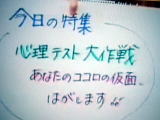 今日の特集
心理テスト大作戦
あなたのココロの仮面、
はがします